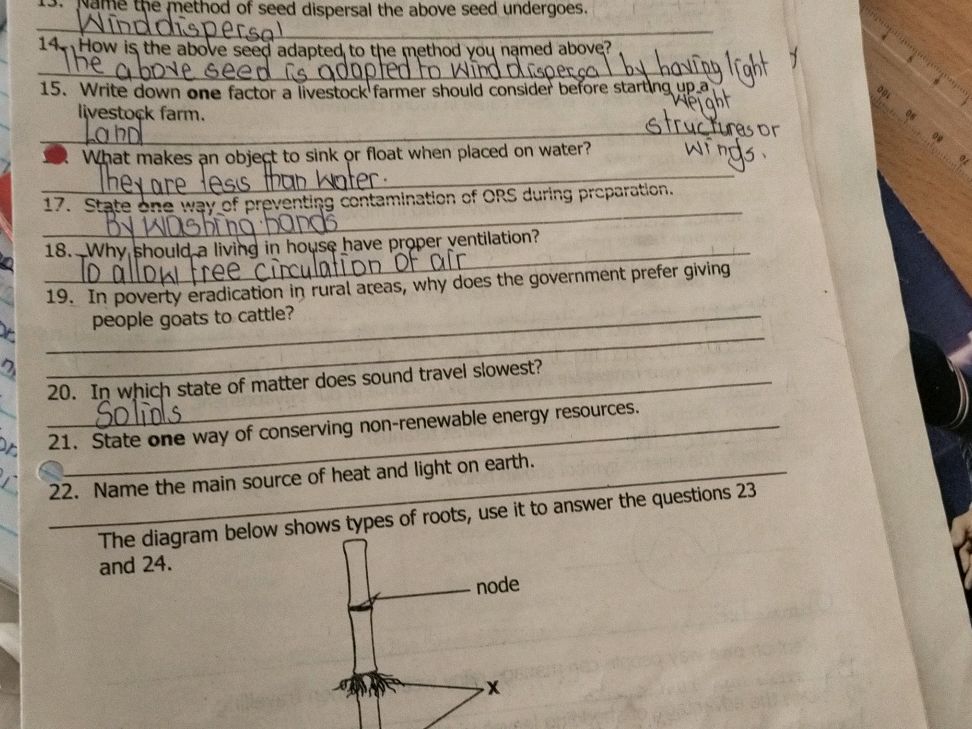 13. Name the method of seed dispersal the above seed undergoes.
Wind dispersal
14. How is the above seed adapted to the method you named above?
The above seed is adapted to wind dispersal by having light
weight
structures or
wings.
15. Write down one factor a livestock farmer should consider before starting up a
livestock farm.
Land
What makes an object to sink or float when placed on water?
They are less than water.
17. State one way of preventing contamination of ORS during preparation.
By washing hands
18. Why should a living in house have proper ventilation?
To allow free circulation of air
19. In poverty eradication in rural areas, why does the government prefer giving
people goats to cattle?
20. In which state of matter does sound travel slowest?
Solids
21. State one way of conserving non-renewable energy resources.
22. Name the main source of heat and light on earth.
The diagram below shows types of roots, use it to answer the questions 23
and 24.
node
X